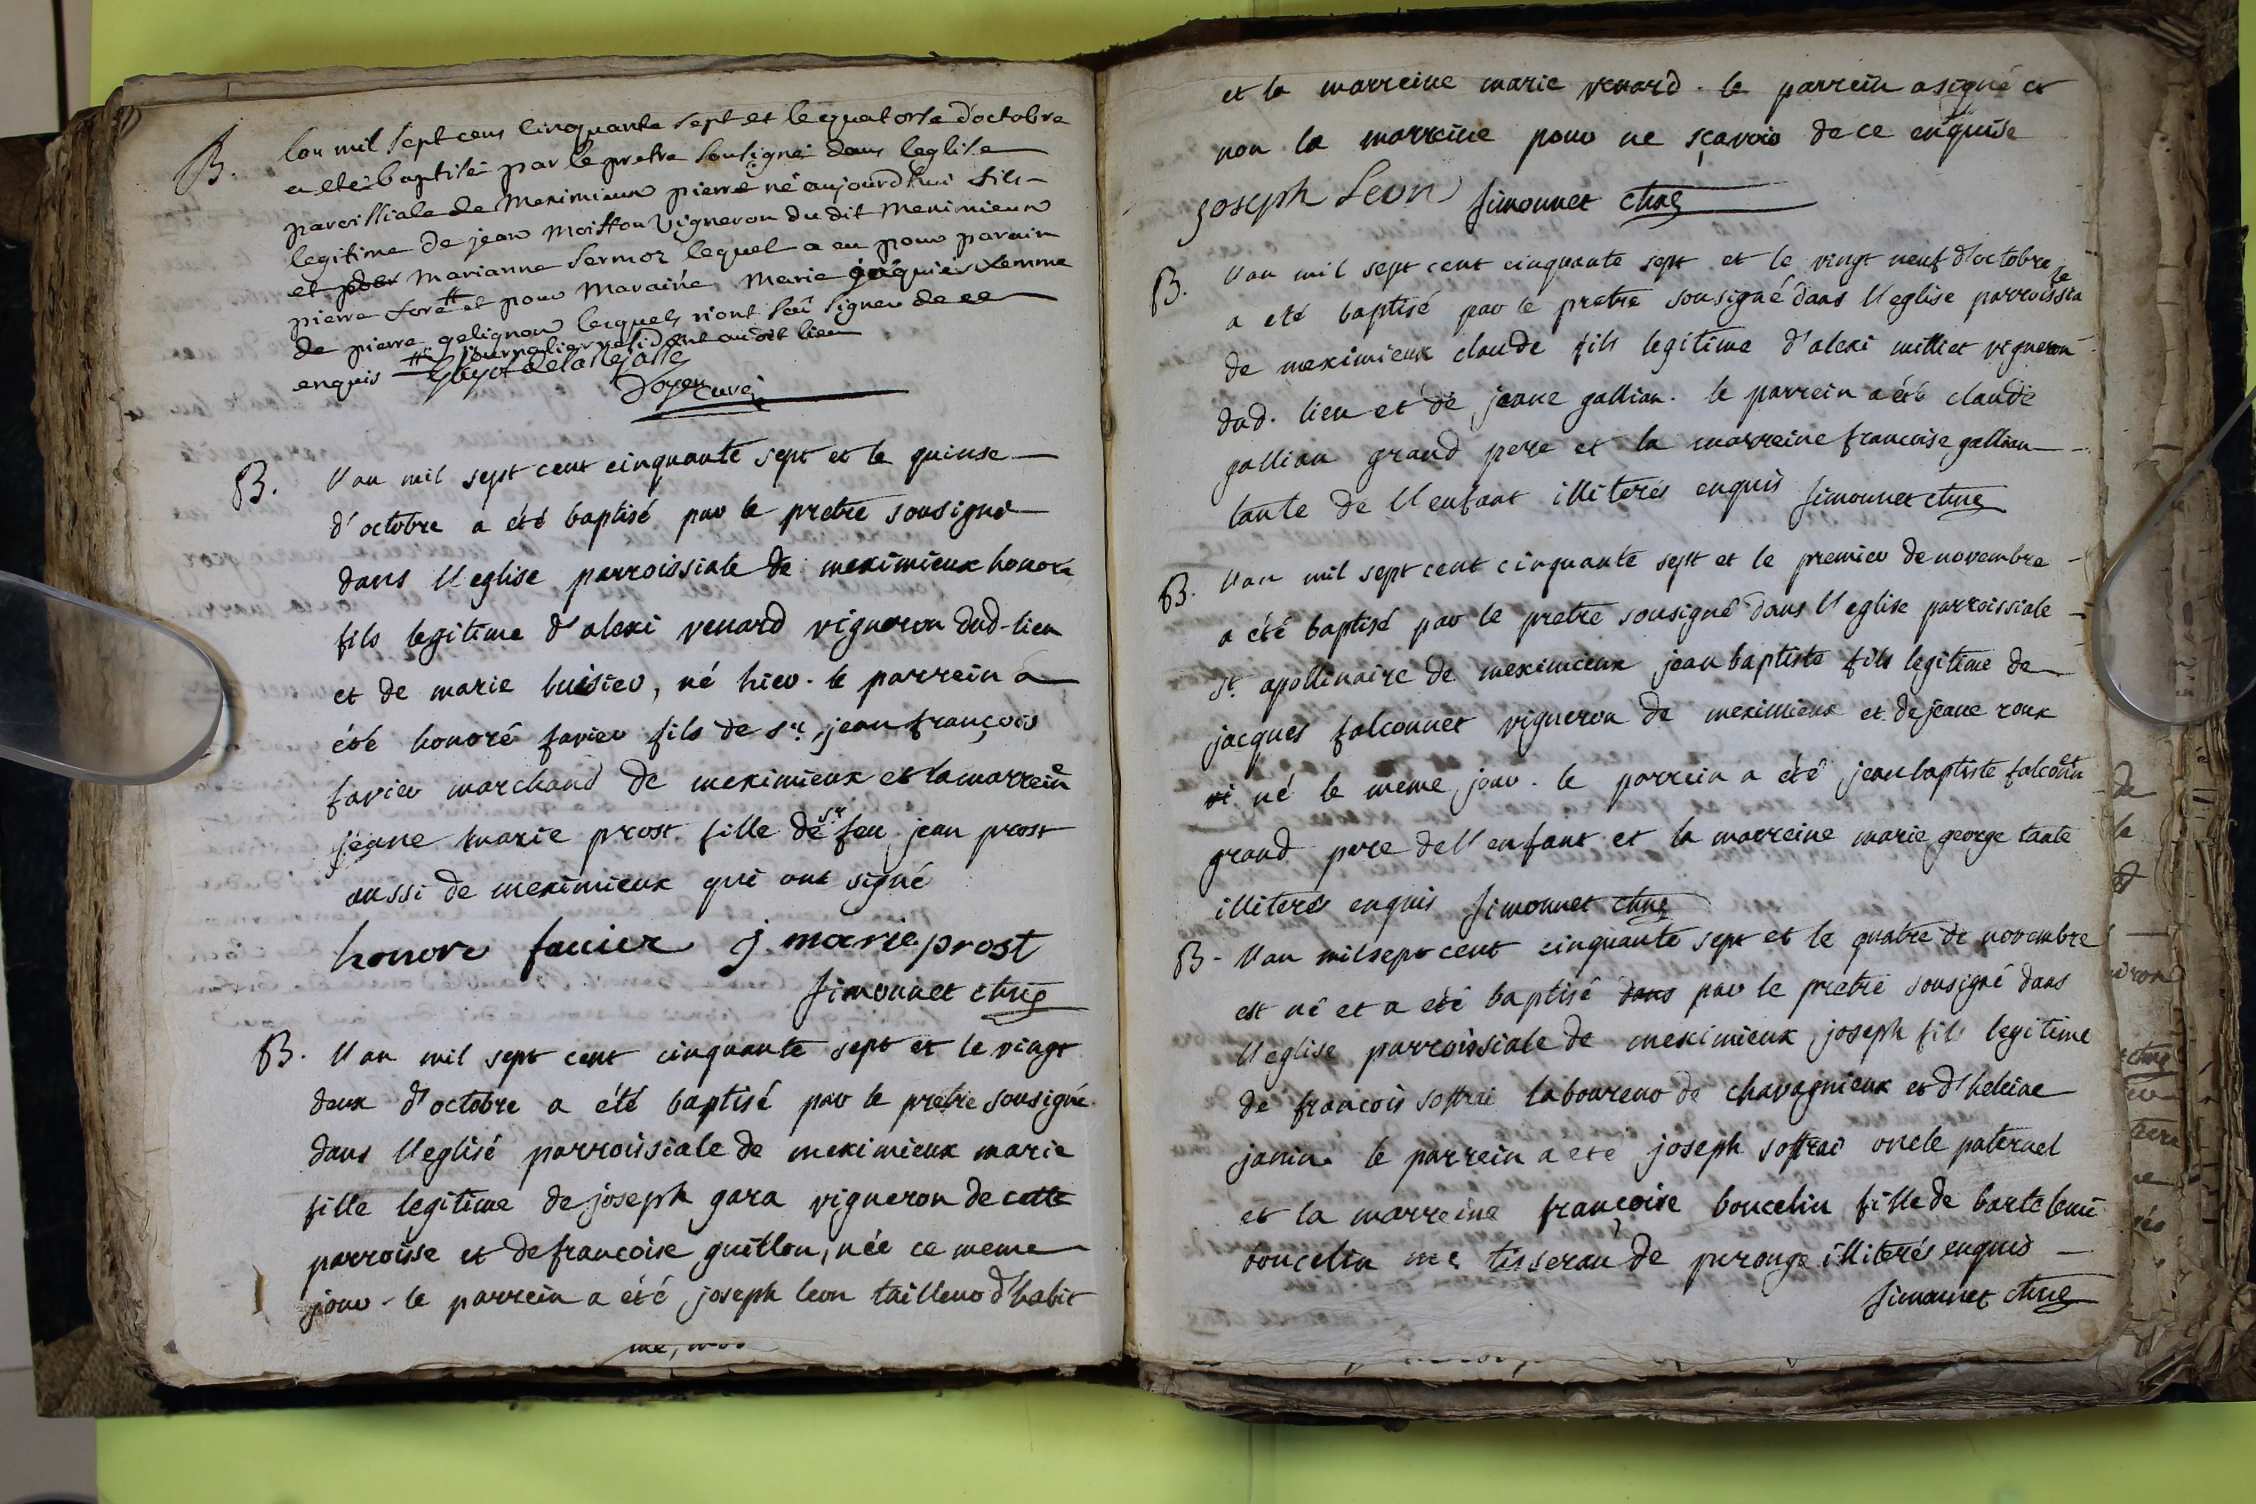 B. lan mil sept cens cinquante sept et le quatorse d'octobre
a eté baptisé par le pretre sousigné dans leglise
paroissiale de Meximieux pierre né aujourdhui fils
legitime de jean Moisson vigneron du dit Meximieux
et pour Marianne Sermoz lequel a eu pour parain
pierre foré # et pour Maraine Marie jacquier femme
de pierre gelignon lesquels n'ont sçû signer de ce
enquis # journalier residant audit lieu
Doyen curé
B. l'an mil sept cent cinquante sept et le quinse
d'octobre a été baptisé par le pretre sousigné
dans l'eglise parroissiale de meximieux honoré
fils legitime d'alexi renard vigneron dud. lieu
et de marie buisier, né hier. le parrein a
été honoré favier fils de sr. jean françois
favier marchand de meximieux et la marreine
jeane marie prost fille de sr. feu jean prost
aussi de meximieux qui ont signé
honore fauier j marie prost
Simonnet
B. l'an mil sept cent cinquante sept et le vingt
deux d'octobre a été baptisé par le pretre sousigné
dans l'eglise parroissiale de meximieux marie
fille legitime de joseph gara vigneron de cette
parroisse et de francoise guillon, née ce meme
jour. le parrein a été joseph leon tailleur d'habit
et la marreine marie renard. le parrein a signé et
non la marreine pour ne sçavoir de ce enquise
joseph Leon Simonnet
B. l'an mil sept cent cinquante sept et le vingt neuf d'octobre
a été baptisé par le pretre sousigné dans l'eglise parroissiale
de meximieux claude fils legitime d'alexi milliet vigneron
dud. lieu et de jeane gallian. le parrein a été claude
gallian grand pere et la marreine francoise gallian
tante de l'enfant illiterés enquis Simonnet
B. l'an mil sept cent cinquante sept et le premier de novembre
a été baptisé par le pretre sousigné dans l'eglise parroissiale
st. apollinaire de meximieux jean baptiste fils legitime de
jacques falconnet vigneron de meximieux et de jeane roux
né le meme jour. le parrein a été jean baptiste falconnet
grand pere de l'enfant et la marreine marie george tante
illiterés enquis Simonnet
B. l'an mil sept cent cinquante sept et le quatre de novembre
est né et a été baptisé dans par le pretre sousigné dans
l'eglise parroissiale de meximieux joseph fils legitime
de francois soffrai laboureur de chavagnieux et d'heleine
janin. le parrein a eté joseph soffrai oncle paternel
et la marreine françoise boucelin fille de bartelemi
boucelin me tisseran de perouge illiterés enquis
Simonnet